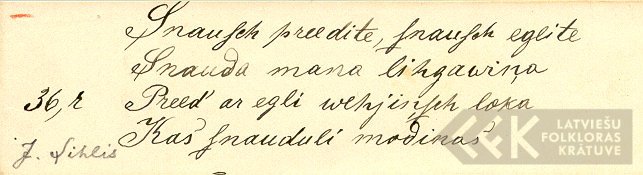 Snauſch preedite, ſnauſch eglite
Snauda mana lihgawiņa
36, r Preed' ar egli wehjinſch loka
Kas ſnauduli modinas
J. Sihlis
LATVIEŠU
FOLKLORAS
KRĀTUVE